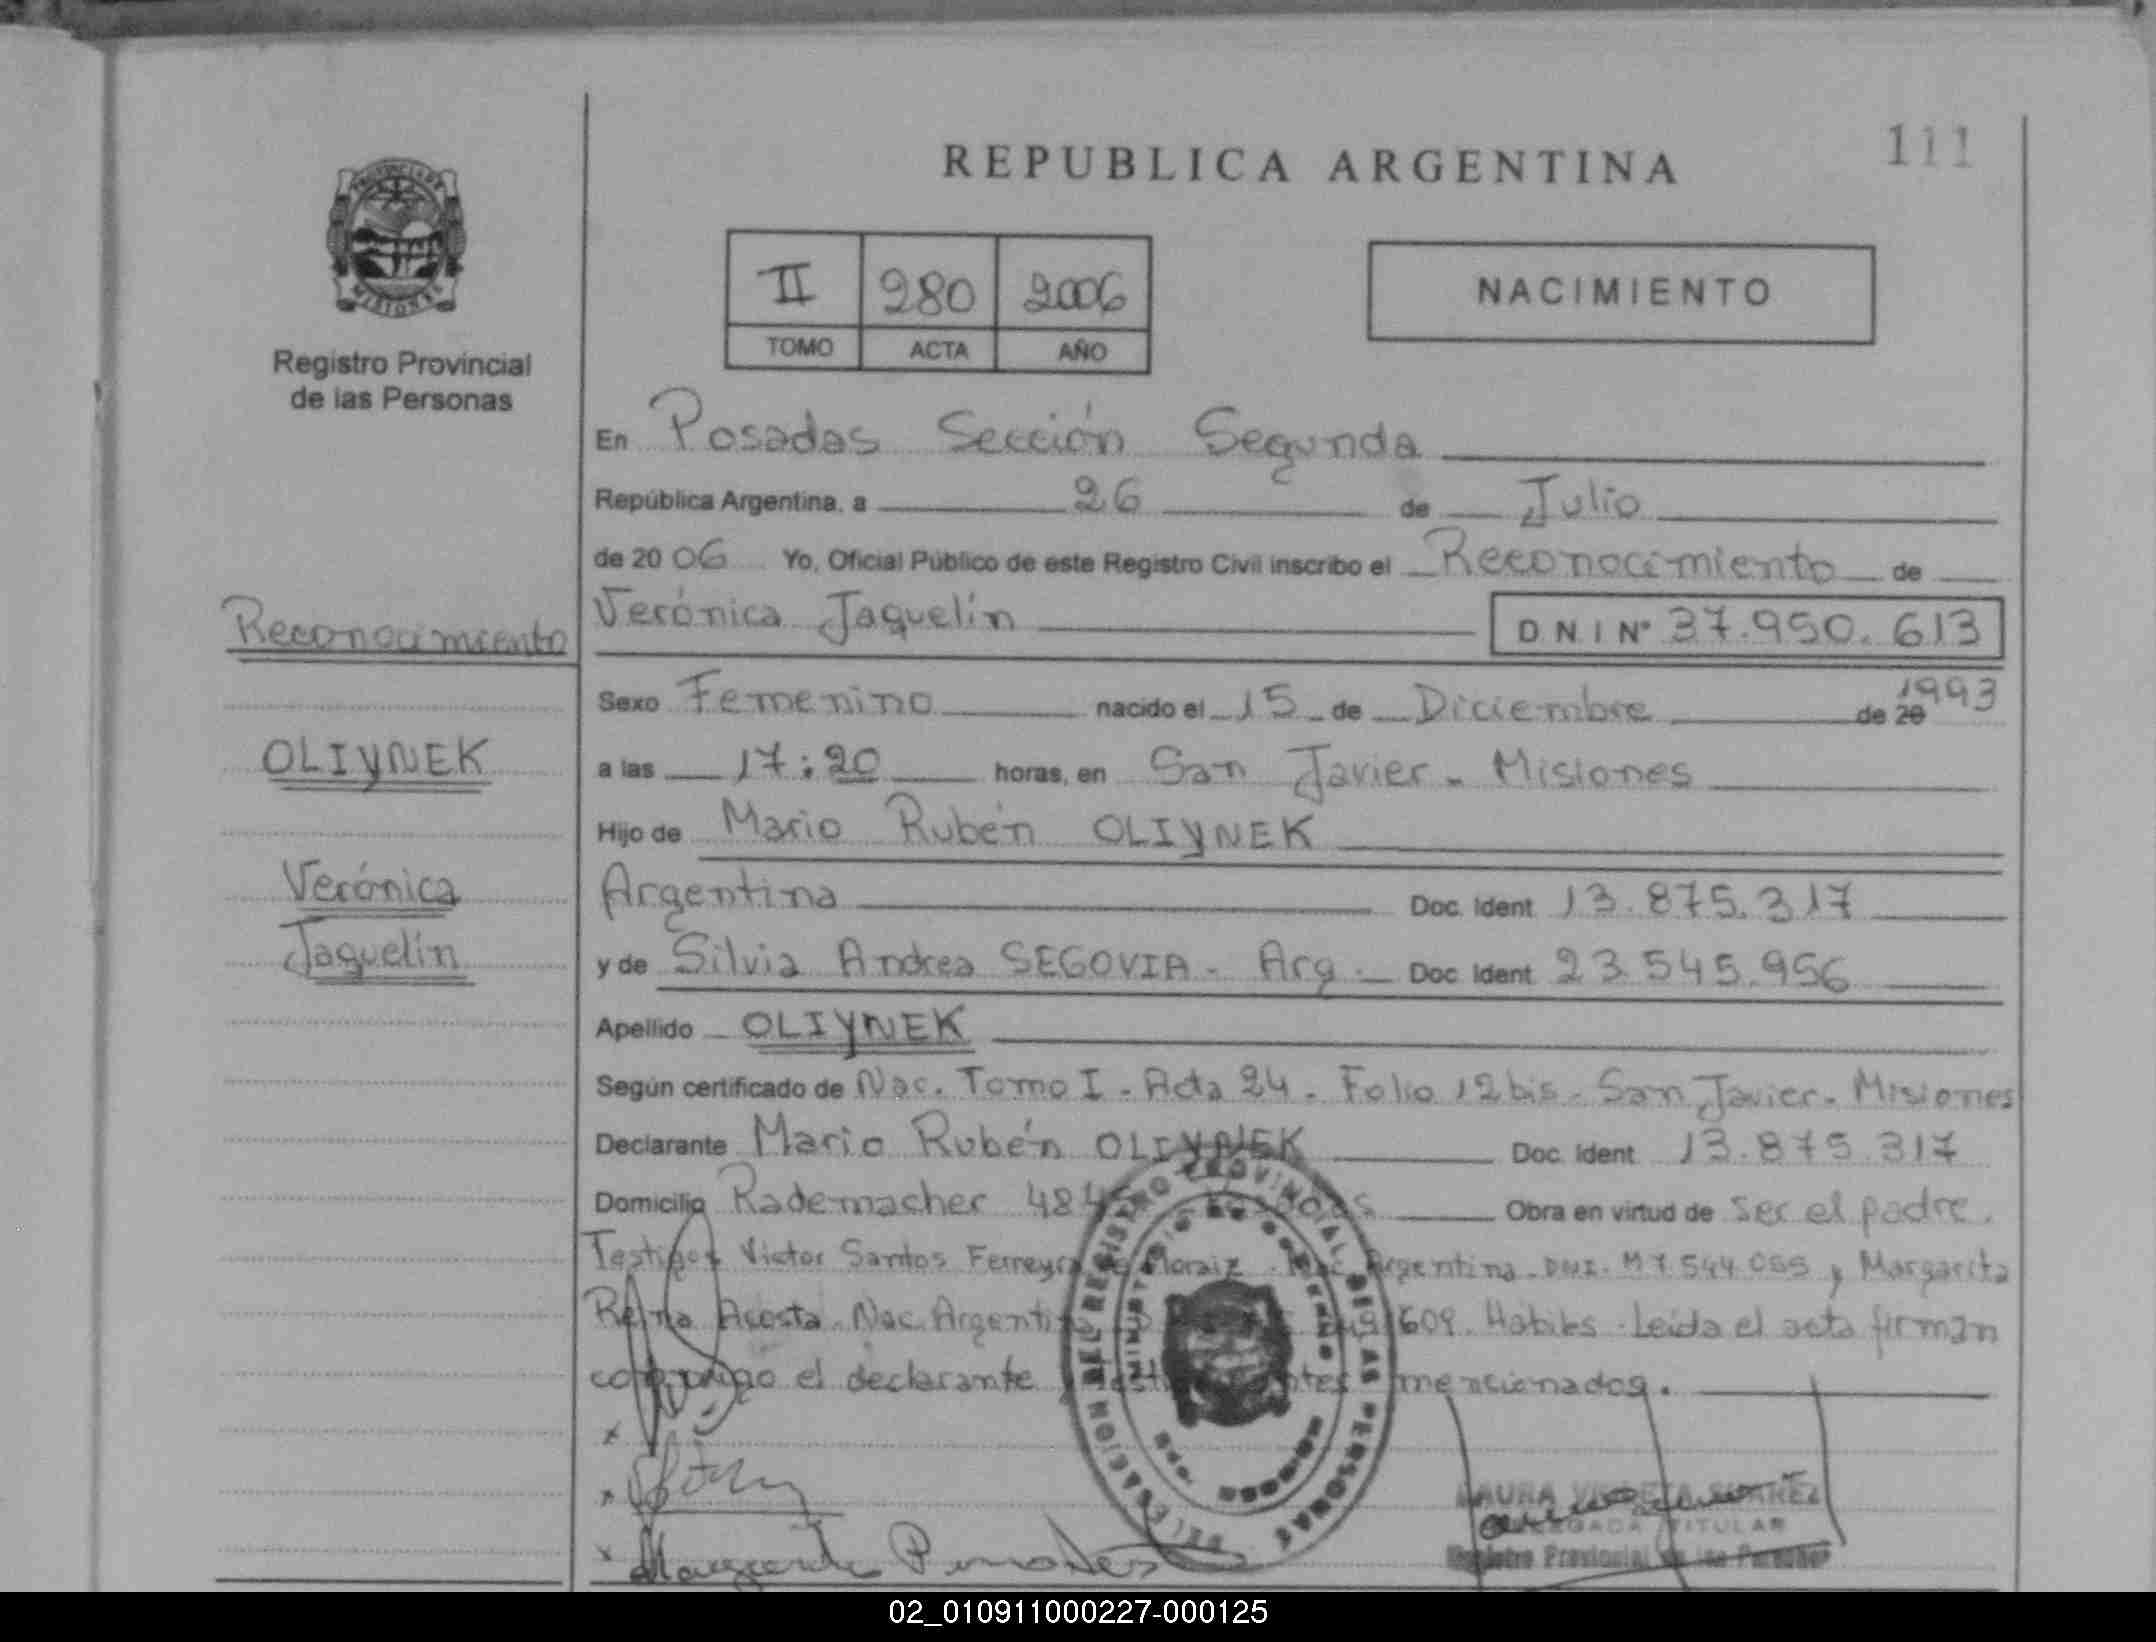 REPUBLICA ARGENTINA
111
PROVINCIA DE
MISIONES
Registro Provincial
de las Personas
II 280 2006
TOMO ACTA AÑO
NACIMIENTO
En Posadas Sección Segunda
República Argentina, a 26 de Julio
de 20 06 Yo, Oficial Público de este Registro Civil inscribo el Reconocimiento de
Verónica Jaquelín DNI Nº 37.950.613
Reconocimiento
OLIYNEK
Verónica
Jaquelín
Sexo Femenino nacido el 15 de Diciembre de 20 1993
a las 17:20 horas, en San Javier - Misiones
Hijo de Mario Rubén OLIYNEK
Argentina Doc. Ident 13.875.317
y de Silvia Andrea SEGOVIA - Arg. Doc. Ident 23.545.956
Apellido OLIYNEK
Según certificado de Nac. Tomo I - Acta 24 - Folio 12 bis - San Javier - Misiones
Declarante Mario Rubén OLIYNEK Doc. Ident 13.875.317
Domicilio Rademacher Obra en virtud de ser el padre.
Testigos Victor Santos Ferreyra Argentina - DNI. M 7.544.055 y Margarita
Reina Acosta - Nac. Argentina 609. Hábiles - Leída el acta firman
conmigo el declarante y mencionados.
DELEGACION DEL REGISTRO PROVINCIAL DE LAS PERSONAS
MINISTERIO DE GOBIERNO
POSADAS
MISIONES
DELEGADA TITULAR
Registro Provincial de las Personas
02_010911000227-000125